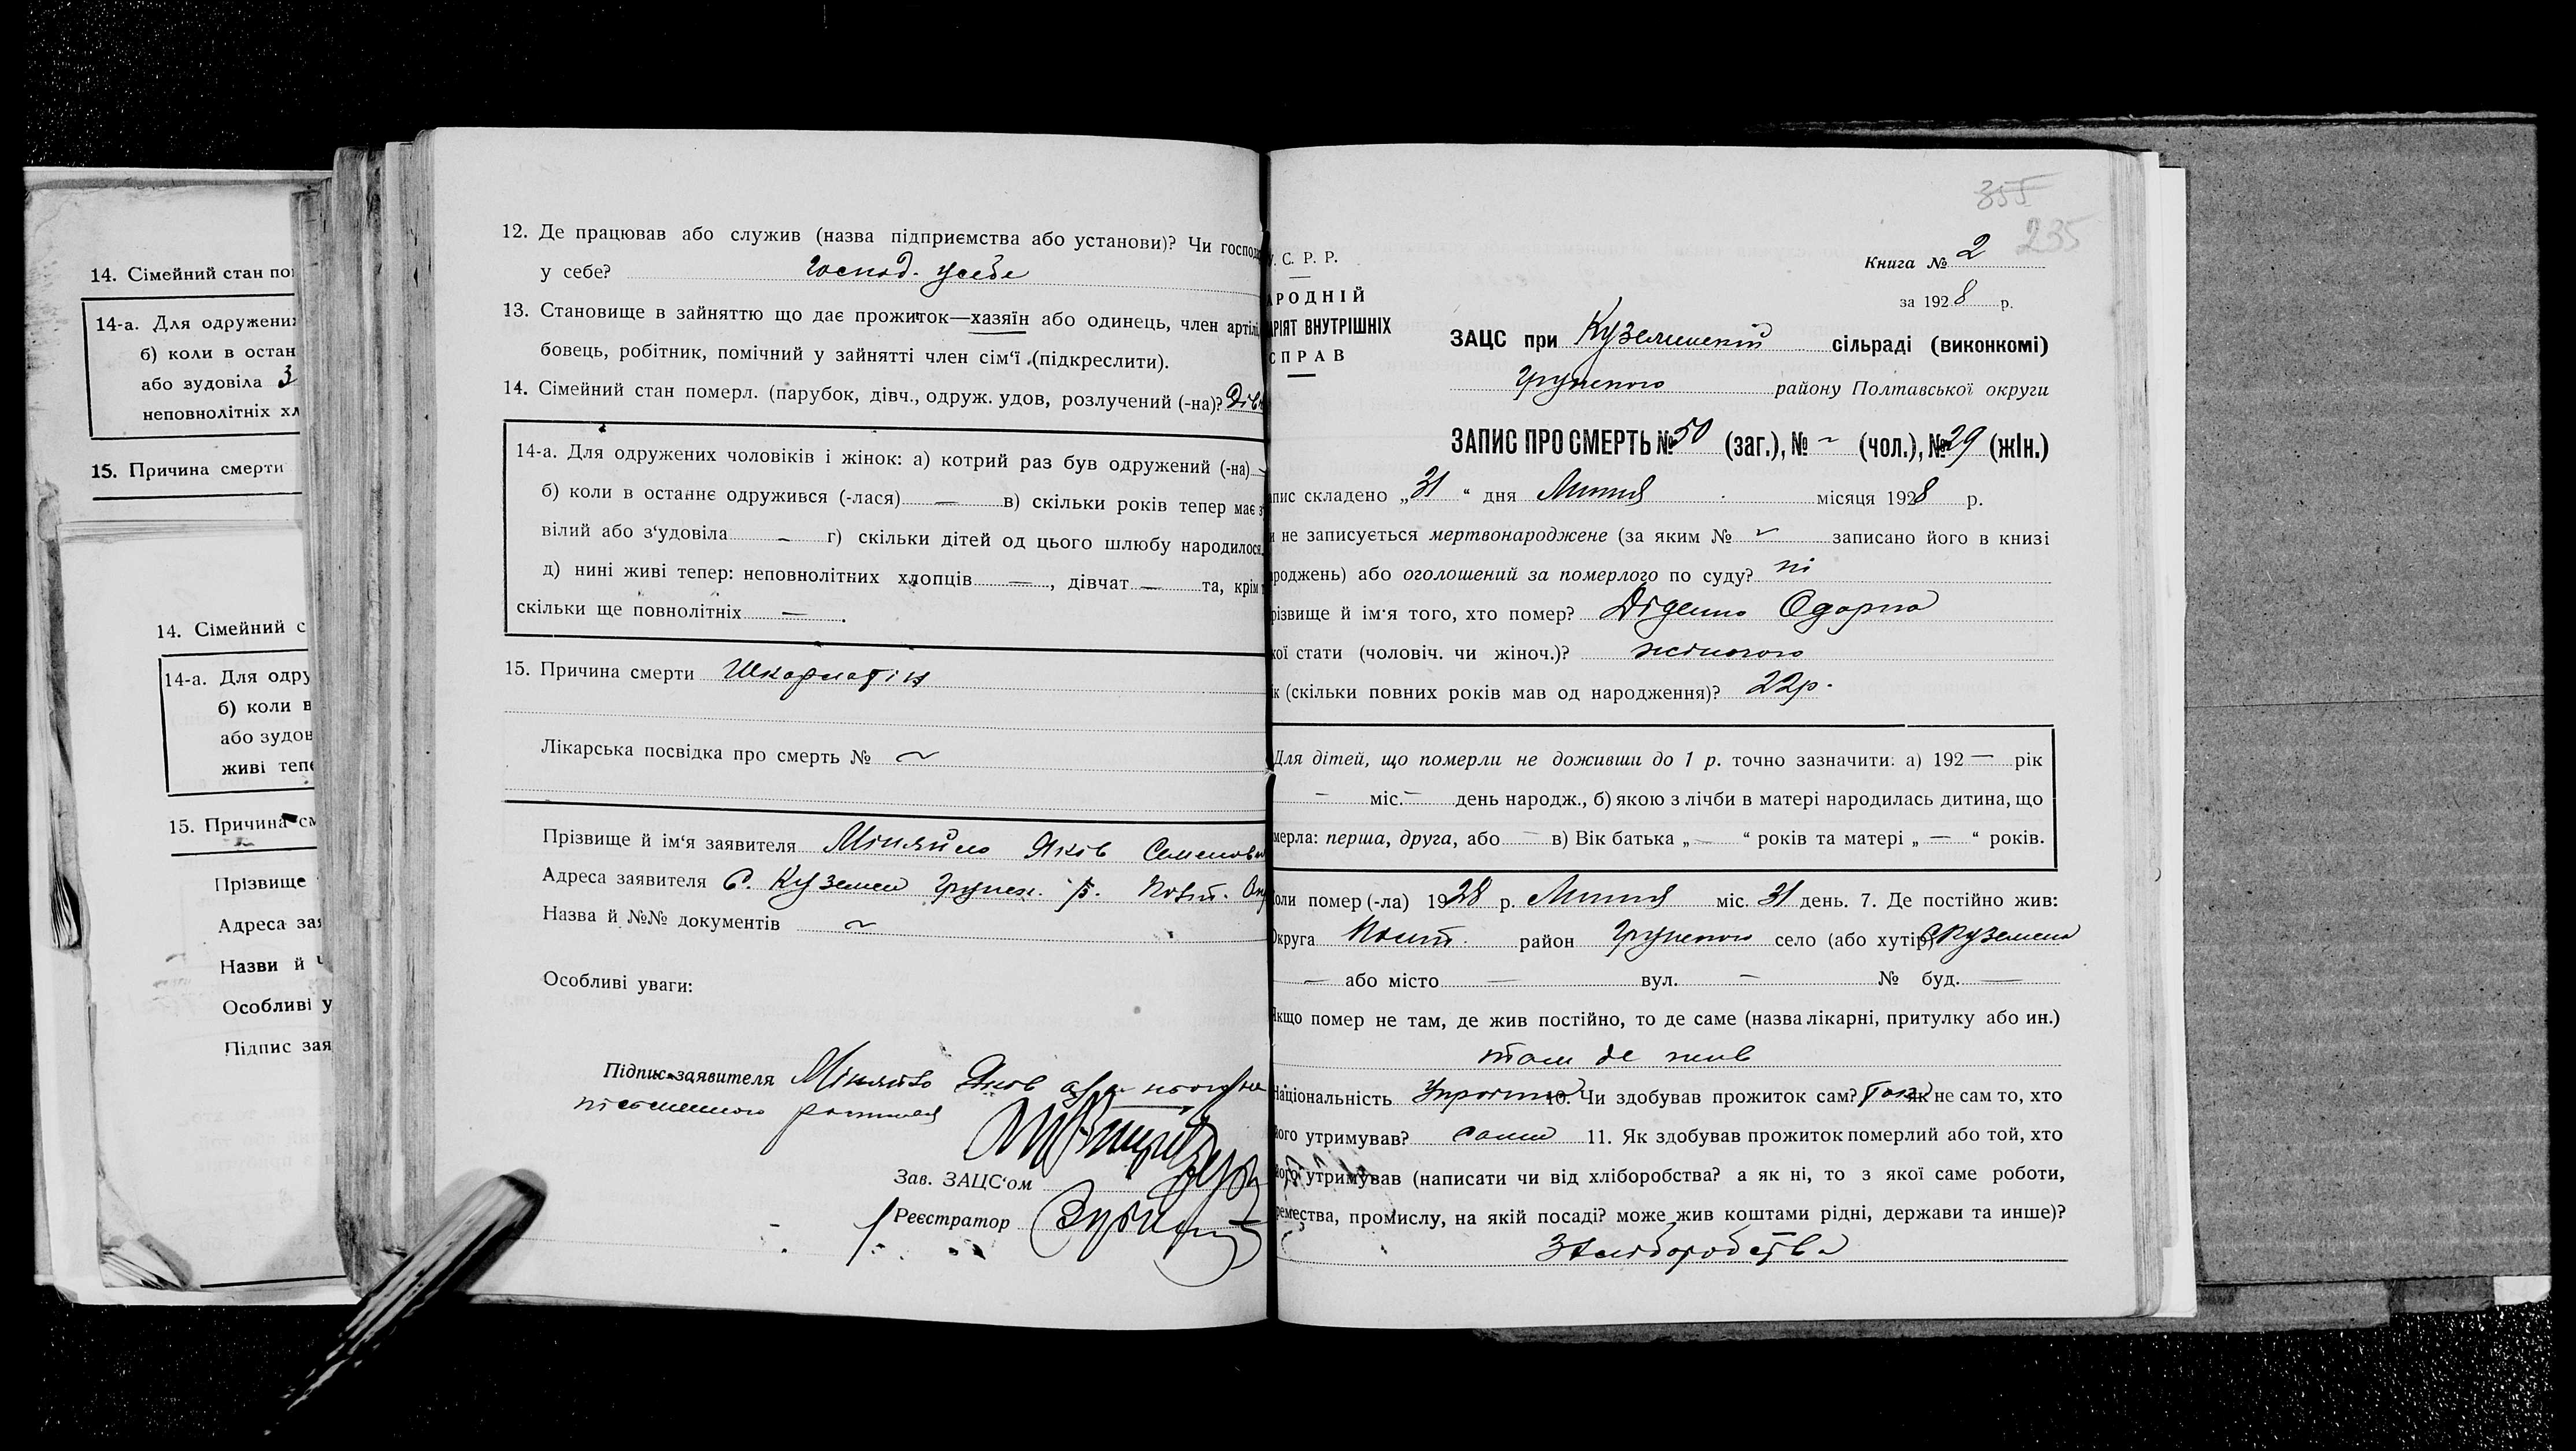 14. Сімейний стан
14-а. Для одружених
б) коли в остан
або зудовіла З
неповнолітніх хл
15. Причина смерти
14. Сімейний с
14-а. Для одру
б) коли в
або зудов
живі тепе
15. Причина см
Прізвище
Адреса зая
Назви й
Особливі у
Підпис зая
12. Де працював або служив (назва підприємства або установи)? Чи господ
у себе? господ. у себе
13. Становище в зайняттю що дає прожиток—хазяїн або одинець, член артілі,
бовець, робітник, помічний у зайнятті член сім'ї (підкреслити).
14. Сімейний стан померл. (парубок, дівч., одруж. удов, розлучений (-на)? Дівч
14-а. Для одружених чоловіків і жінок: а) котрий раз був одружений (-на)
б) коли в останнє одружився (-лася) — в) скільки років тепер має з
вілий або з'удовіла — г) скільки дітей од цього шлюбу народилося,
д) нині живі тепер: неповнолітних хлопців —, дівчат — та, крім т
скільки ще повнолітніх —.
15. Причина смерти Шкарлатін
Лікарська посвідка про смерть № ~
Прізвище й ім'я заявителя Міняйло Яків Семенов
Адреса заявителя С. Куземен Грунск. р. Полт. Окр
Назва й №№ документів ~
Особливі уваги:
Підпис заявителя Міняйло Яков а за него не
писменного росписався
Зав. ЗАЦС'ом
Реєстратор
355
235
У. С. Р. Р.
Книга № 2
АРОДНІЙ
за 1928 р.
АРІЯТ ВНУТРІШНІХ
СПРАВ
ЗАЦС при Куземенскій сільраді (виконкомі)
Грунского району Полтавської округи
ЗАПИС ПРО СМЕРТЬ № 50 (заг.), № ~ (чол.), № 29 (жін.)
пис складено „31“ дня Липня місяця 1928 р.
и не записується мертвонароджене (за яким № ~ записано його в книзі
роджень) або оголошений за померлого по суду? ні
різвище й ім'я того, хто помер? Діденко Одарка
кої стати (чоловіч. чи жіноч.)? жіночого
ік (скільки повних років мав од народження)? 22 р.
Для дітей, що померли не доживши до 1 р. точно зазначити: а) 192 — рік
— міс. — день народж., б) якою з лічби в матері народилась дитина, що
мерла: перша, друга, або — в) Вік батька „ — “ років та матері „ — “ років.
Коли помер (-ла) 1928 р. Липня міс. 31 день. 7. Де постійно жив:
Округа Полт. район Грунского село (або хутір) С Куземена
— або місто — вул. — № буд. —
Якщо помер не там, де жив постійно, то де саме (назва лікарні, притулку або ин.)
там де жив
Національність Украінка 10. Чи здобував прожиток сам? Так як не сам то, хто
його утримував? сама 11. Як здобував прожиток померлий або той, хто
його утримував (написати чи від хліборобства? а як ні, то з якої саме роботи,
ремества, промислу, на якій посаді? може жив коштами рідні, держави та инше)?
З хліборобства